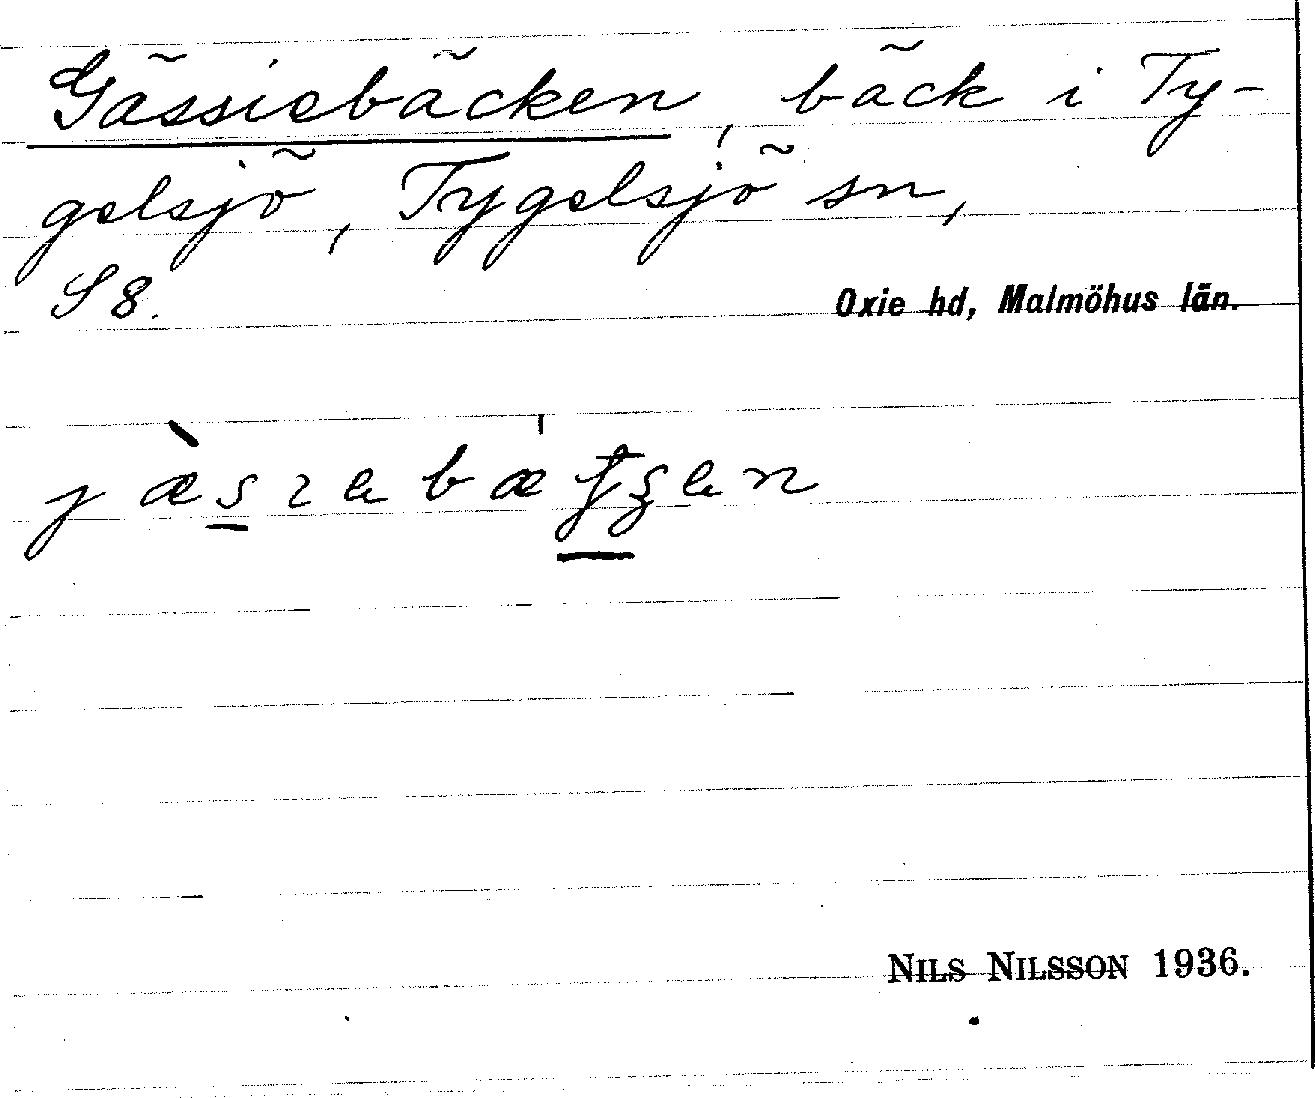 Gässiebäcken, bäck i Ty-
gelsjö, Tygelsjö sn,
S 8.
Oxie hd, Malmöhus län.
NILS NILSSON 1936.